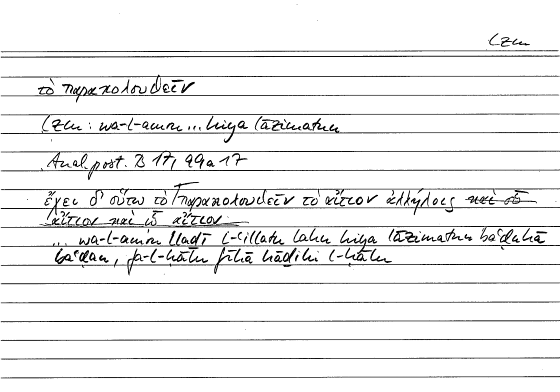 lzm
τὸ παρακολουθεῖν
lzm : wa-l-amru ... hiya lāzimatun
Anal. post. B 17, 99a17
ἔχει δ' οὕτω τὸ παρακολουθεῖν τὸ αἴτιον ἀλλήλοις καὶ οὗ
αἴτιον καὶ ᾧ αἴτιον
... wa-l-amru lladī l-ʿillatu lahu hiya lāzimatun baʿḍuhā
baʿḍan, fa-l-ḥālu fīhā hāḏihi l-ḥālu